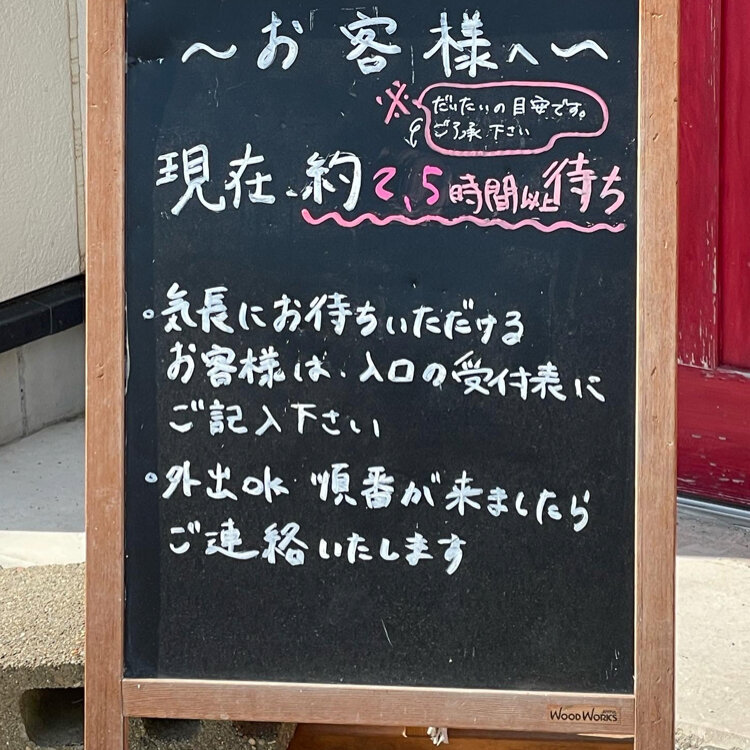 ～お客様へ～
※だいたいの目安です。
ご了承下さい
現在、約2,5時間以上待ち
・気長にお待ちいただける
お客様は、入口の受付表に
ご記入下さい
・外出ok 順番が来ましたら
ご連絡いたします
WOODWORKS